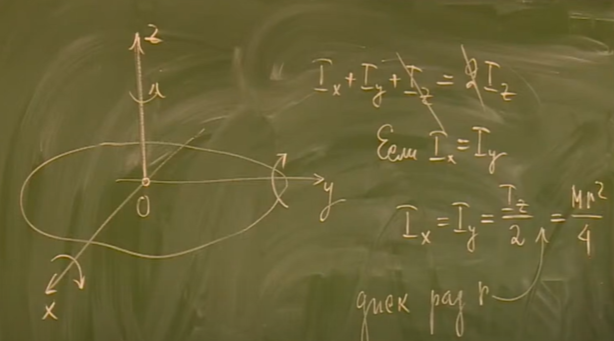 z
I_x + I_y + I_z = 2I_z
Если I_x = I_y
y
O
I_x = I_y = I_z/2 = Mr²/4
x
диск рад r